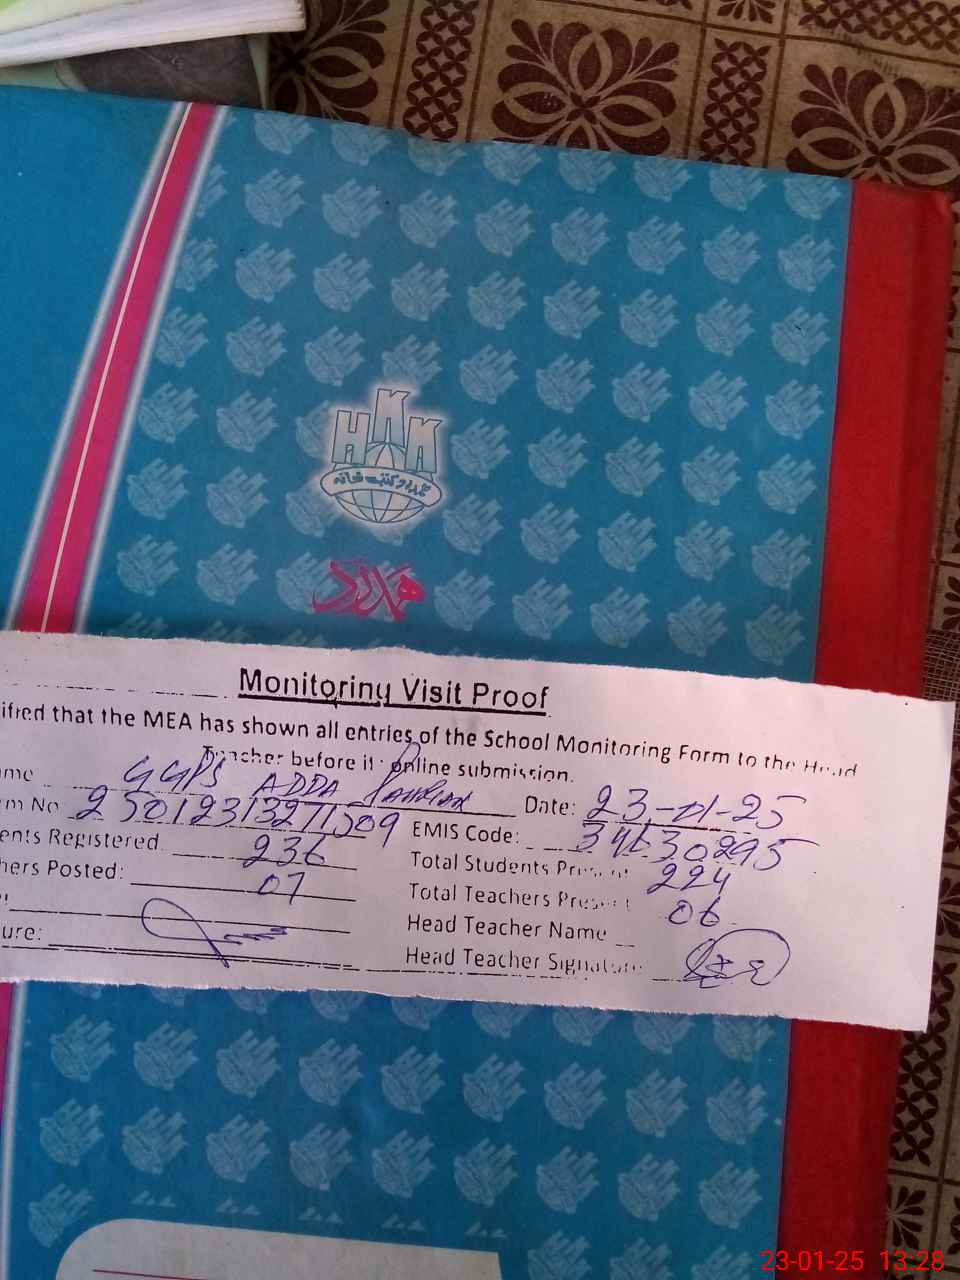 HKK
ہمدرد کتب خانہ
ہمدرد
Monitoring Visit Proof
ified that the MEA has shown all entries of the School Monitoring Form to the Head
Teacher before it online submission.
me GGPS ADDA Date: 23-01-25
m No 250123132711509 EMIS Code: 34630295
ents Registered 236 Total Students Present 224
hers Posted: 07 Total Teachers Present 06
Head Teacher Name
ure: Head Teacher Signature:
23-01-25 13:28